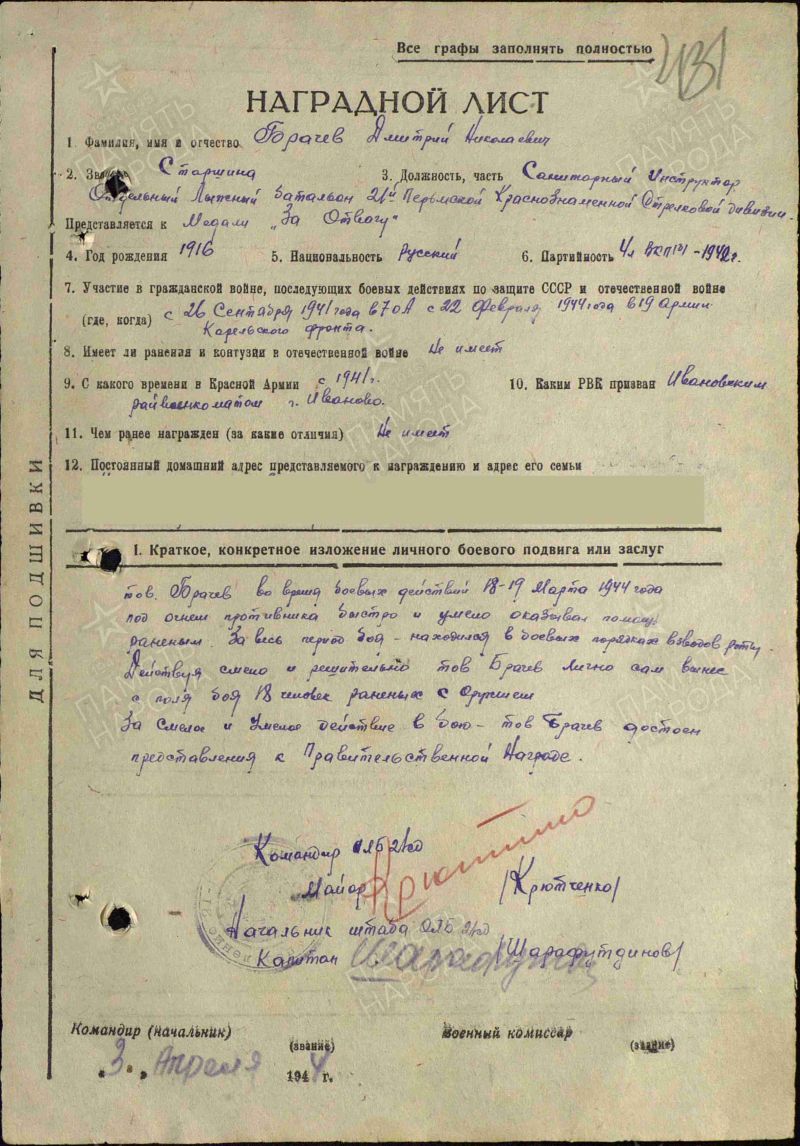 Все графы заполнять полностью
431
НАГРАДНОЙ ЛИСТ
1. Фамилия, имя и отчество Брачев Дмитрий Николаевич
2. Зва Старшина 3. Должность, часть Санитарный Инструктор
Отдельный Лыжный Батальон 21й Пермской Краснознаменной Стрелковой дивизии
Представляется к Медали „За Отвагу"
4. Год рождения 1916 5. Национальность Русский 6. Партийность чл ВКП(б) - 1942г.
7. Участие в гражданской войне, последующих боевых действиях по защите СССР и отечественной войне
(где, когда) с 26 Сентября 1941 года в 7 оА с 22 Февраля 1944 года в 19 Армии
Карельского фронта.
8. Имеет ли ранения и контузии в отечественной войне Не имеет
9. С какого времени в Красной Армии с 1941г. 10. Каким РВК призван Ивановским
райвоенкоматом г. Иваново.
11. Чем ранее награжден (за какие отличия) Не имеет
12. Постоянный домашний адрес представляемого к награждению и адрес его семьи
I. Краткое, конкретное изложение личного боевого подвига или заслуг
тов. Брачев во время боевых действий 18-19 Марта 1944 года
под огнем противника быстро и умело оказывал помощь
раненым. За весь период боя - находился в боевых порядках взводов роты.
Действуя смело и решительно тов Брачев лично сам вынес
с поля боя 18 человек раненых с оружием
За Смелое и Умелое действие в бою - тов Брачев достоен
представления к Правительственной Награде.
Командир ОЛБ 21сд
Майор /Крютченко/
Начальник штаба ОЛБ 21сд
Капитан /Шарафутдинов/
Командир (начальник) Военный комиссар
(звание) (звание)
„3" Апреля 1944 г.
ДЛЯ ПОДШИВКИ
ПАМЯТЬ НАРОДА